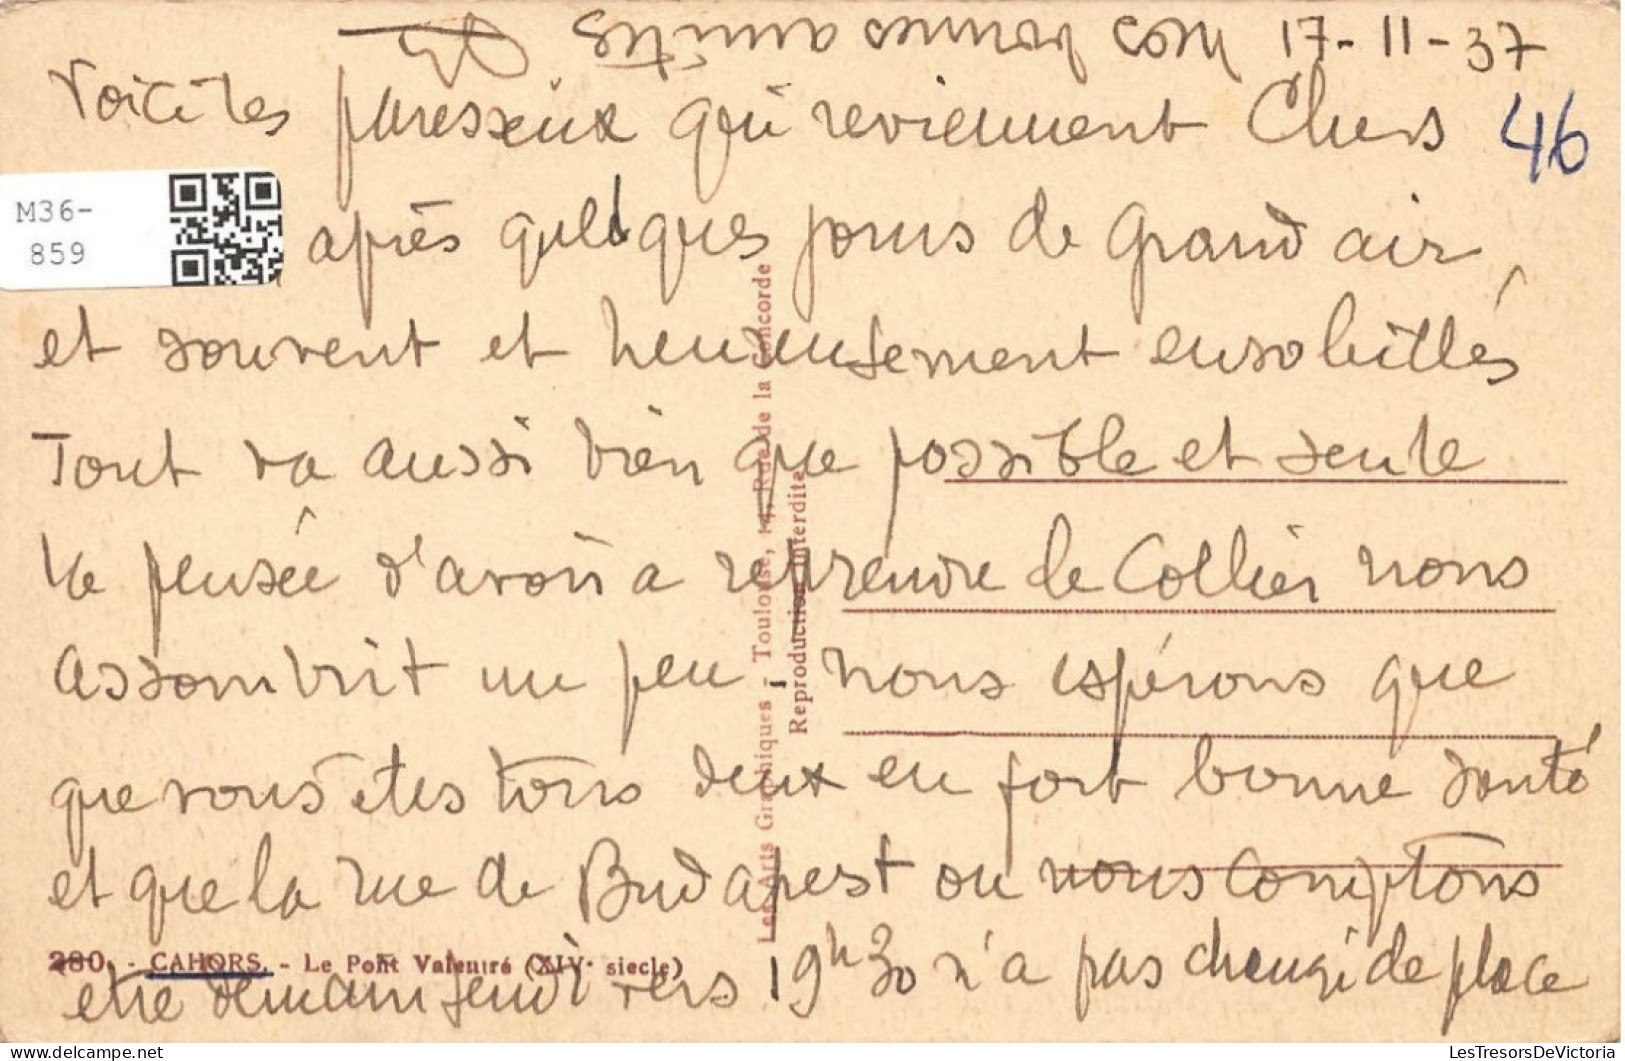 17-11-37
Nos bonnes amitiés
Voici les paresseux qui reviennent Chers
46
M36-
859
après quelques jours de grand air,
et souvent et heureusement ensoleillés
Tout va aussi bien que possible et seule
la pensée d'avoir à reprendre le Collier nous
assombrit un peu - nous espérons que
que vous êtes tous deux en fort bonne santé
et que la rue de Budapest ou nous comptons
être demain jeudi vers 19h30 n'a pas changé de place
280. - CAHORS. - Le Pont Valentré (XIVe siècle)
Les Arts Graphiques - Toulouse, 14, Rue de la Concorde
Reproduction Interdite
LesTresorsDeVictoria.com